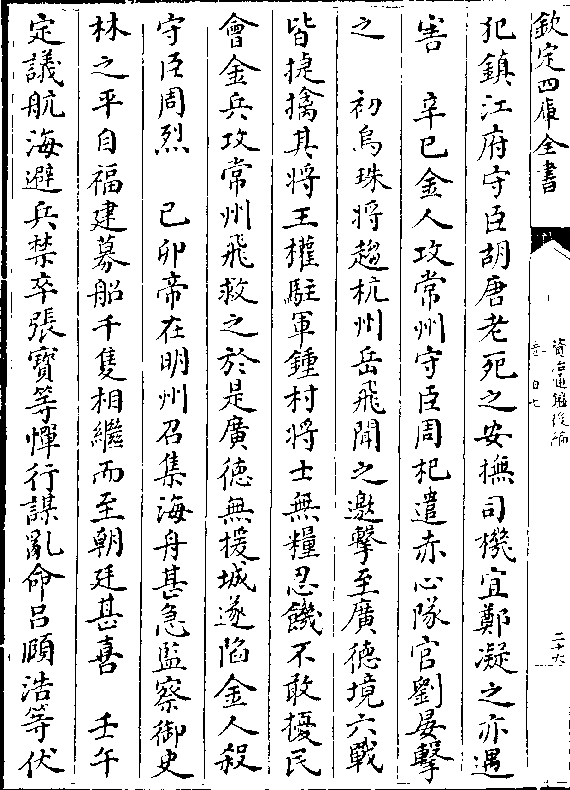 欽定四庫全書
資治通鑑後編
卷一百七
二十六
犯鎮江府守臣胡唐老死之安撫司機宜鄭凝之亦遇
害　辛巳金人攻常州守臣周杞遣赤心隊官劉晏擊
之　初烏珠將趨杭州岳飛聞之邀擊至廣德境六戰
皆捷擒其將王權駐軍鍾村將士無糧忍饑不敢擾民
會金兵攻常州飛救之於是廣德無援城遂陷金人殺
守臣周烈　己卯帝在明州召集海舟甚急監察御史
林之平自福建募船千隻相繼而至朝廷甚喜　壬午
定議航海避兵禁卒張寶等憚行謀亂命呂頤浩等伏